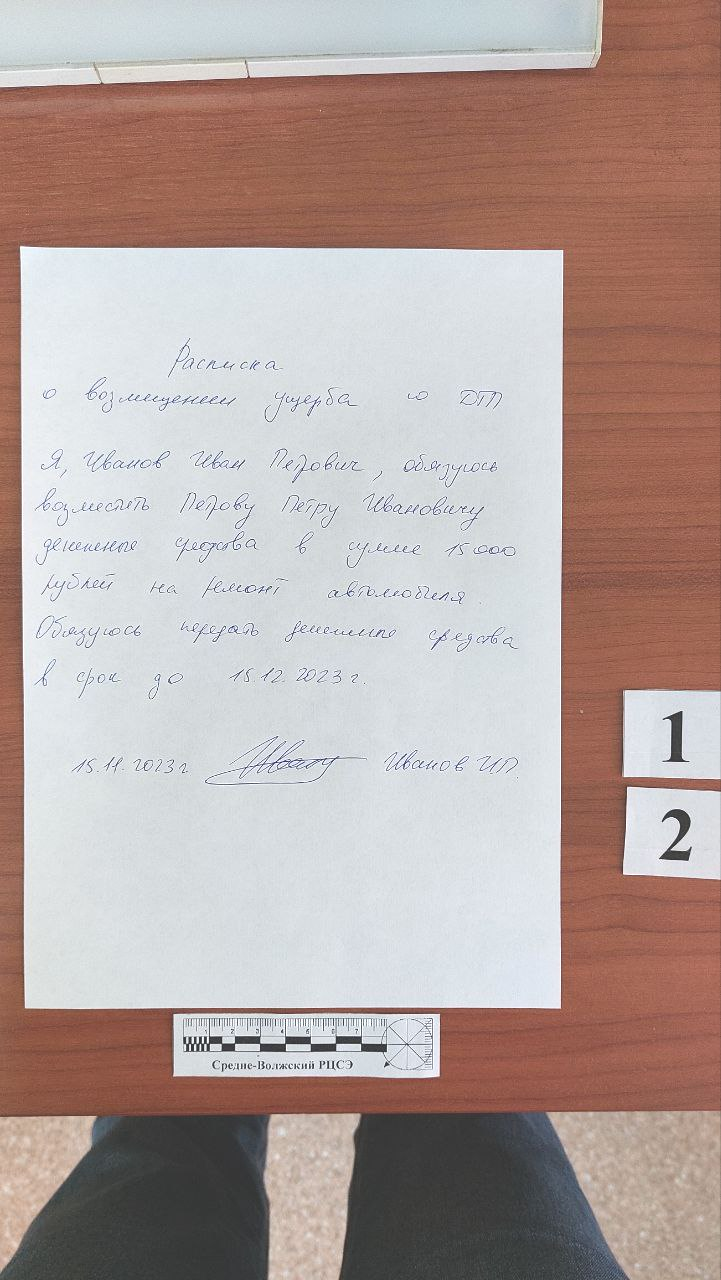 Расписка
о возмещении ущерба по ДТП
Я, Иванов Иван Петрович, обязуюсь
возместить Петрову Петру Ивановичу
денежные средства в сумме 15 000
рублей на ремонт автомобиля.
Обязуюсь передать денежные средства
в срок до 15.12.2023 г.
15.11.2023 г Иванов И.П.
1
2
1 2 3 4 5 6 7
Средне-Волжский РЦСЭ